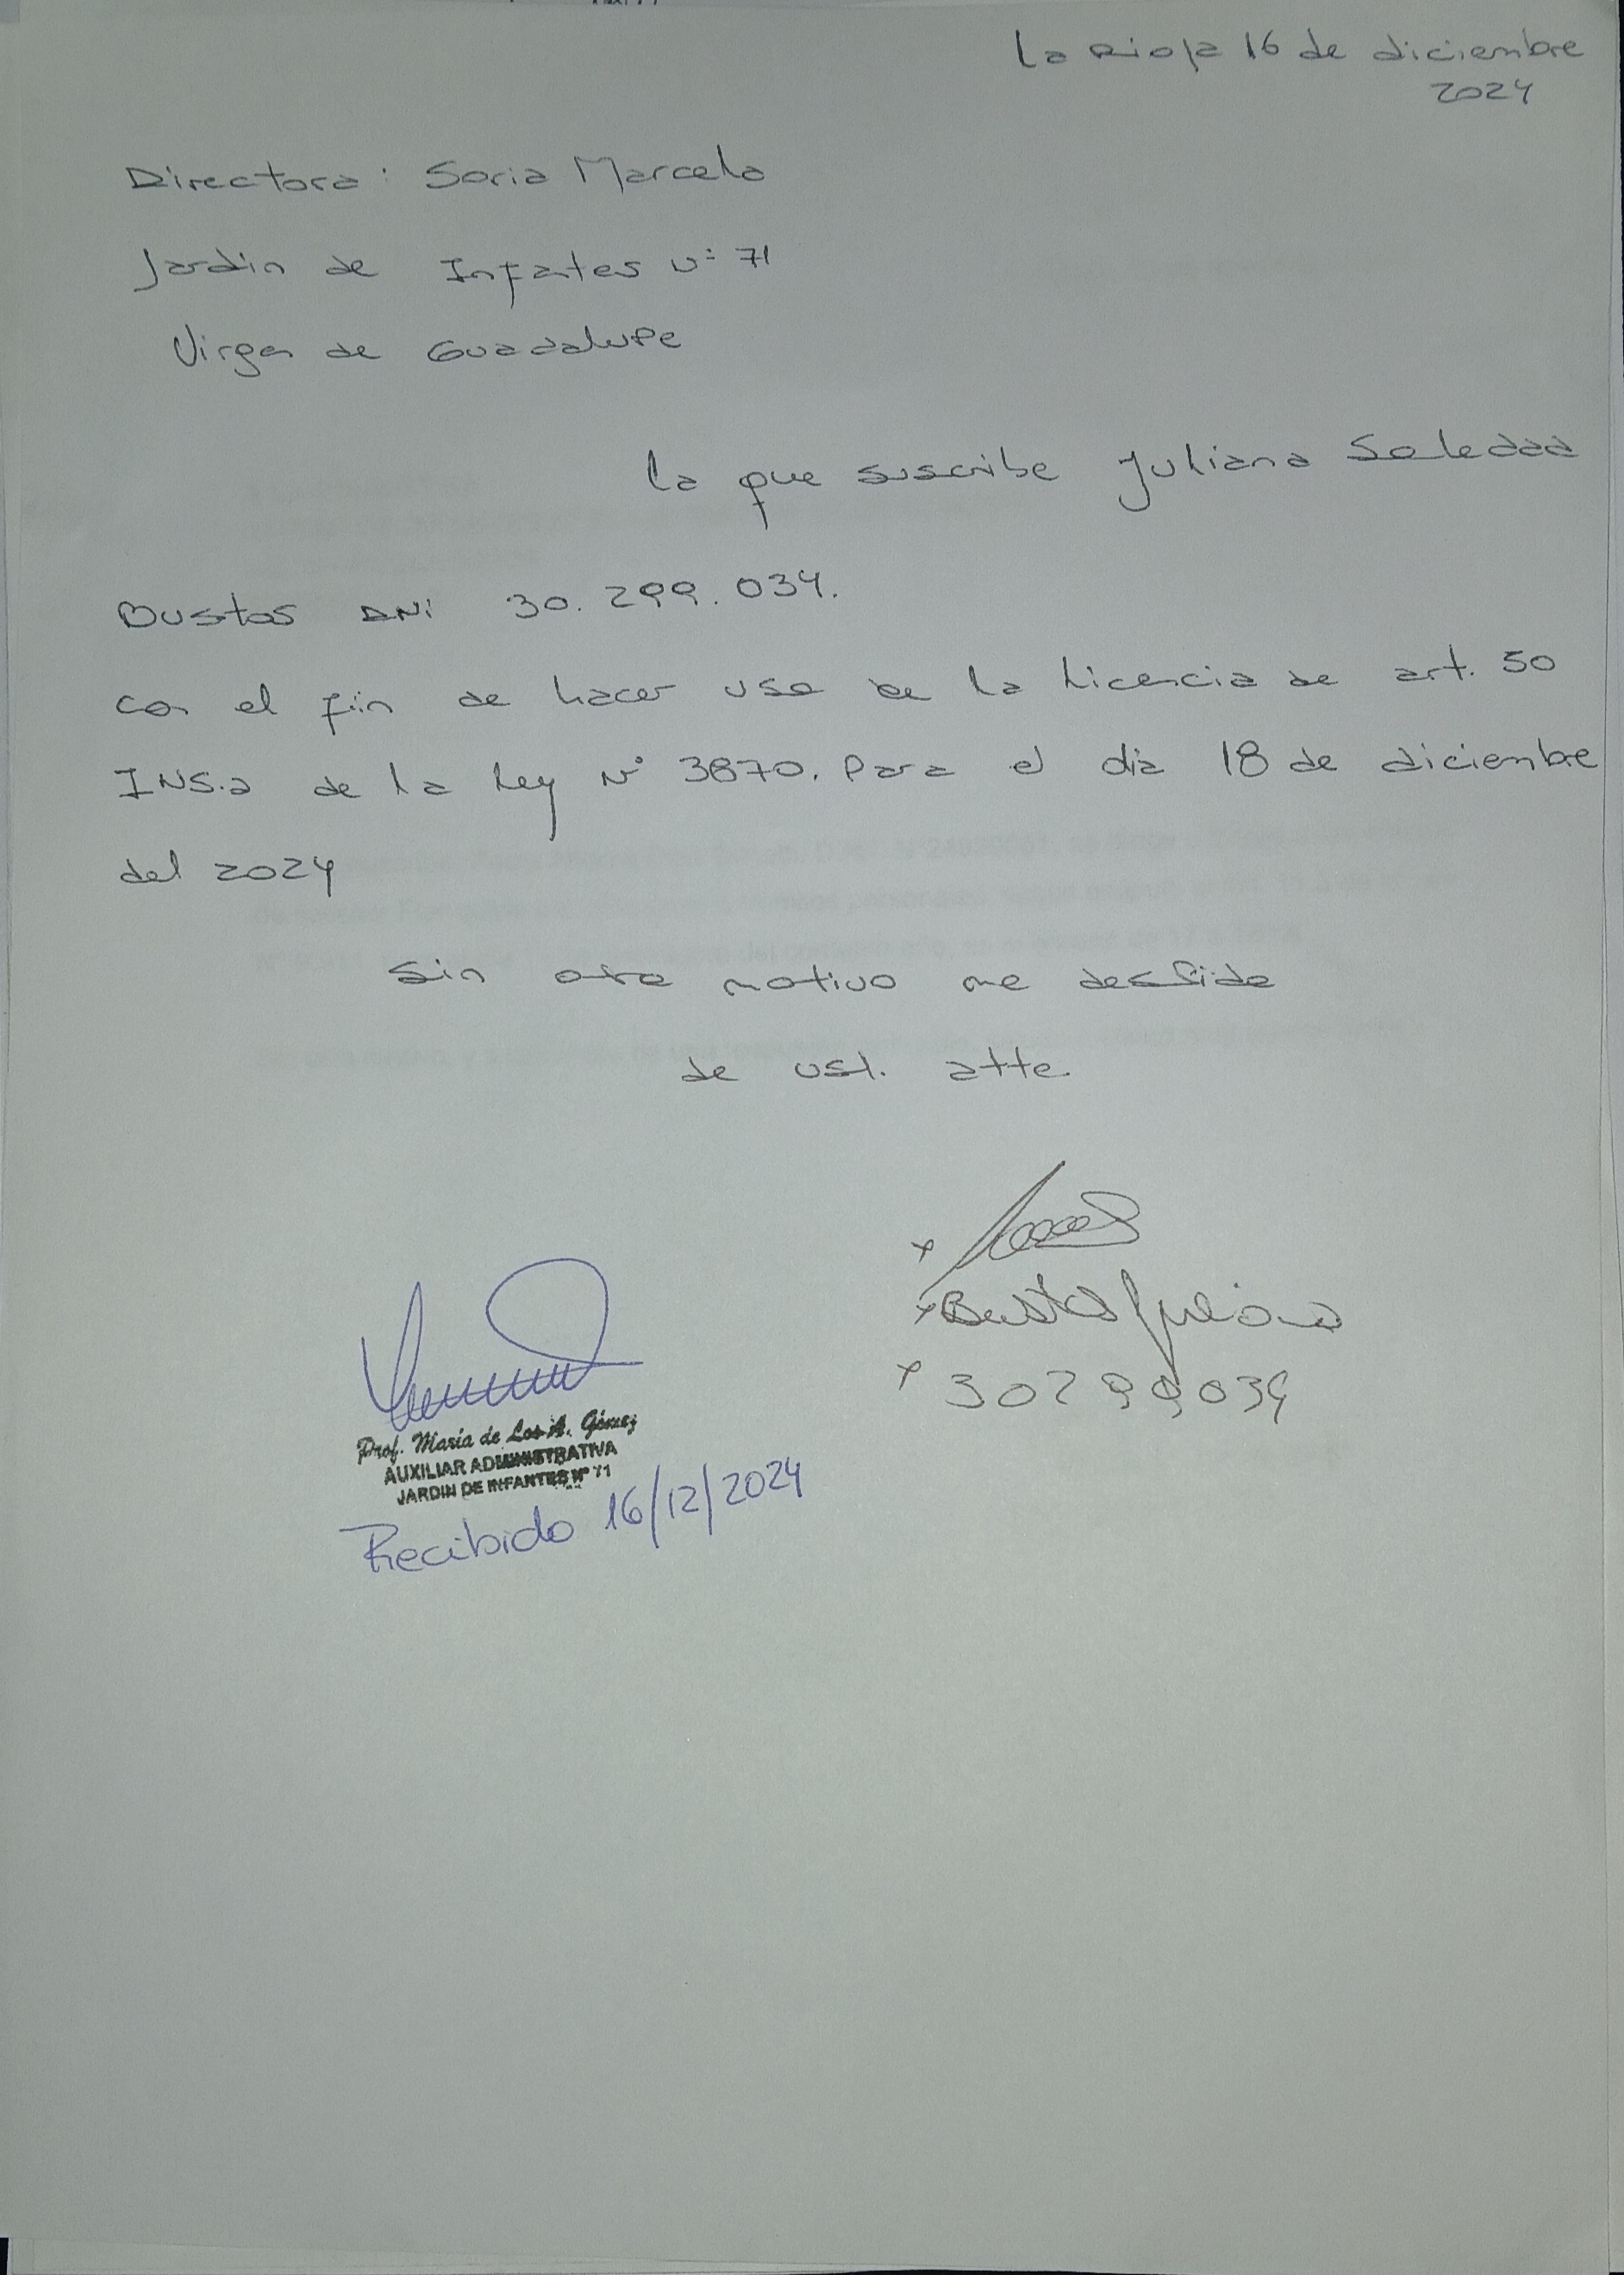 La Rioja 16 de diciembre
2024
Directora: Soria Marcela
Jardin de Infates N° 71
Virgen de Guadalupe
La que suscribe Juliana Soledad
Bustos DNI 30.299.034.
con el fin de hacer uso de la Licencia de art. 50
INS.a de la Ley N° 3870. Para el dia 18 de diciembre
del 2024
Sin otro motivo me despido
de ust. atte.
x
x Bustos Juliana
x 30299034
Prof. María de Los A. Gómez
AUXILIAR ADMINISTRATIVA
JARDIN DE INFANTES Nº 71
Recibido 16/12/2024